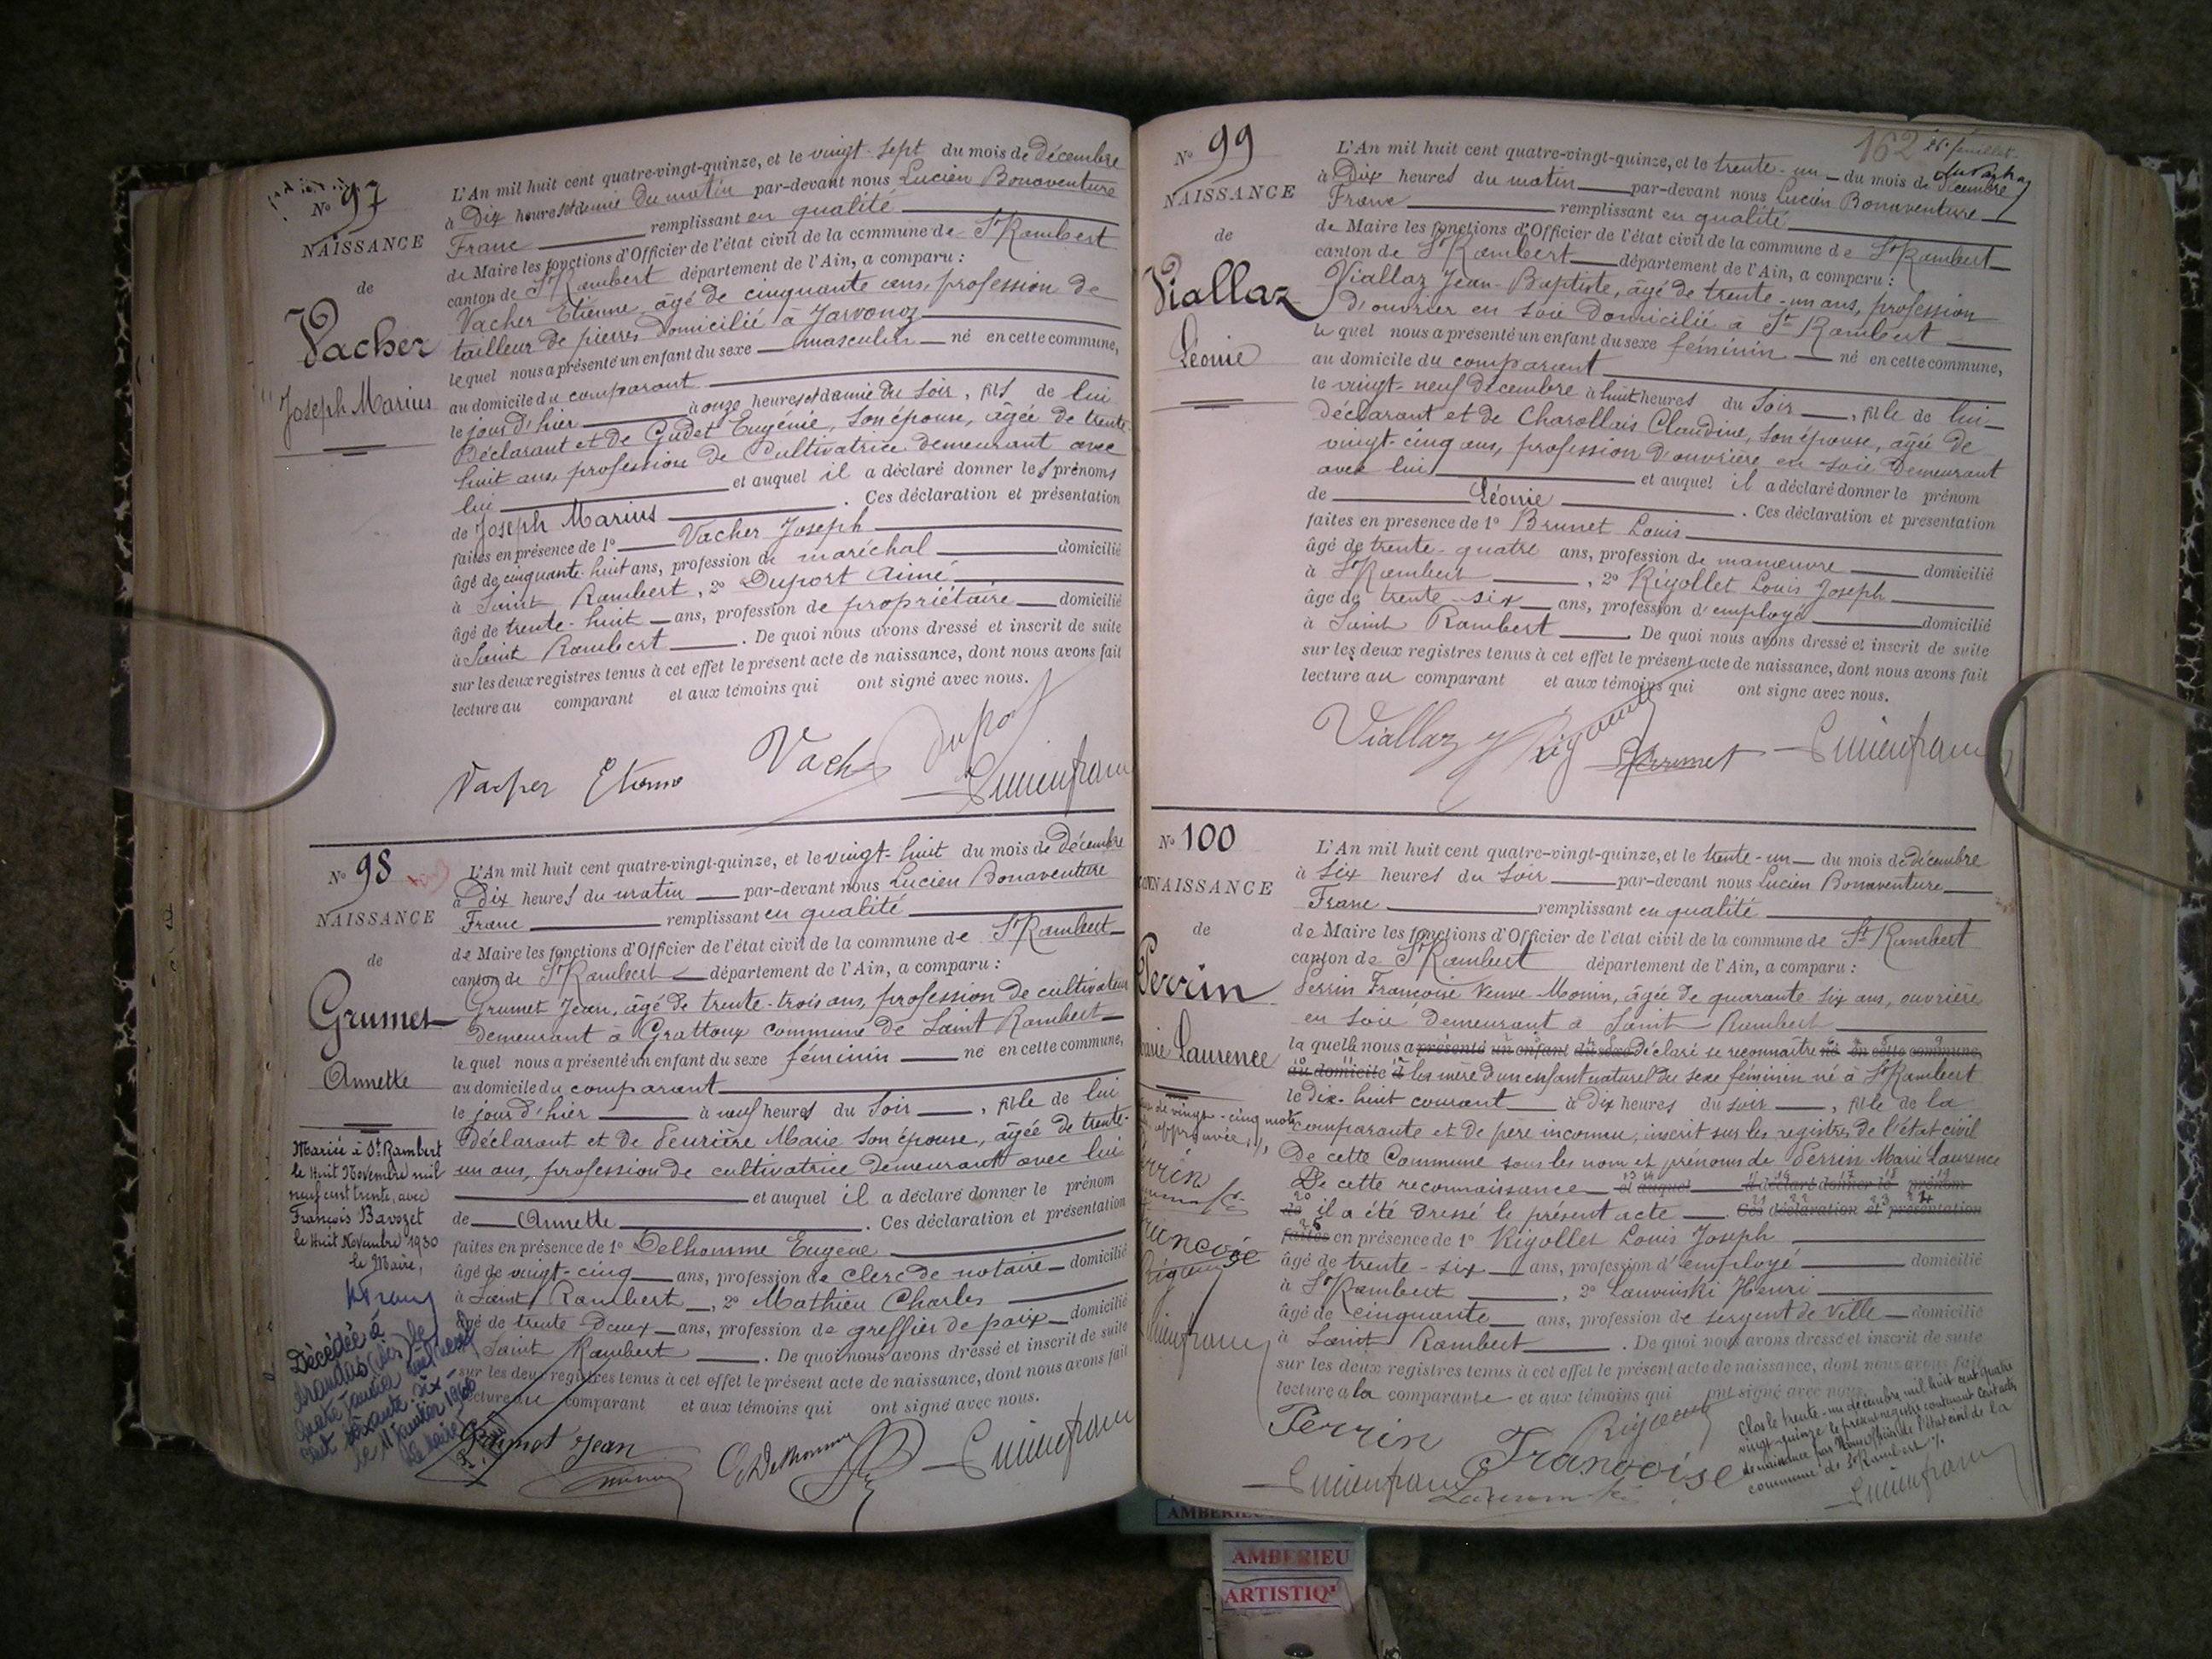 N° 97
NAISSANCE
de
Vacher
Joseph Marius
L'An mil huit cent quatre-vingt-quinze, et le vingt-sept du mois de Décembre
à Dix heures et demie du matin par-devant nous Lucien Bonaventure
Franc remplissant en qualité
de Maire les fonctions d'Officier de l'état civil de la commune de St Rambert
canton de St Rambert département de l'Ain, a comparu :
Vacher Etienne, âgé de cinquante ans, profession de
tailleur de pierres domicilié à Javornoz
lequel nous a présenté un enfant du sexe masculin né en cette commune,
au domicile du comparant
le jour d'hier à onze heures et demie du soir, fils de lui
Déclarant et de Gudet Eugénie, son épouse, âgée de trente
huit ans, profession de Cultivatrice demeurant avec
lui et auquel il a déclaré donner les prénoms
de Joseph Marius . Ces déclaration et présentation
faites en présence de 1° Vacher Joseph
âgé de cinquante-huit ans, profession de maréchal domicilié
à Saint Rambert, 2° Duport Aimé
âgé de trente-huit ans, profession de propriétaire domicilié
à Saint Rambert . De quoi nous avons dressé et inscrit de suite
sur les deux registres tenus à cet effet le présent acte de naissance, dont nous avons fait
lecture au comparant et aux témoins qui ont signé avec nous.
N° 98
NAISSANCE
de
Grumet
Annette
Mariée à St Rambert
le Huit Novembre mil
neuf cent trente, avec
François Bavozet
le Huit Novembre 1930
le Maire,
Décédée à
Arandas (Ain) le
quatre janvier mil neuf
cent soixante six
le 11 janvier 1966
L'An mil huit cent quatre-vingt-quinze, et le vingt-huit du mois de Décembre
à Dix heures du matin par-devant nous Lucien Bonaventure
Franc remplissant en qualité
de Maire les fonctions d'Officier de l'état civil de la commune de St Rambert
canton de St Rambert département de l'Ain, a comparu :
Grumet Jean, âgé de trente-trois ans, profession de cultivateur
demeurant à Grattoux commune de Saint Rambert
lequel nous a présenté un enfant du sexe féminin né en cette commune,
au domicile du comparant
le jour d'hier à neuf heures du soir, fille de lui
Déclarant et de Peurière Marie son épouse, âgée de trente-
un ans, profession de cultivatrice demeurant avec lui
et auquel il a déclaré donner le prénom
de Annette . Ces déclaration et présentation
faites en présence de 1° Delhomme Eugène
âgé de vingt-cinq ans, profession de clerc de notaire domicilié
à Saint Rambert, 2° Mathieu Charles
âgé de trente Deux ans, profession de greffier de paix domicilié
Saint Rambert . De quoi nous avons dressé et inscrit de suite
sur les deux registres tenus à cet effet le présent acte de naissance, dont nous avons fait
lecture au comparant et aux témoins qui ont signé avec nous.
Grumet Jean
162 26e feuillet
N° 99
NAISSANCE
de
Viallaz
Léonie
L'An mil huit cent quatre-vingt-quinze, et le trente-un du mois de décembre
à Dix heures du matin par-devant nous Lucien Bonaventure
Franc remplissant en qualité
de Maire les fonctions d'Officier de l'état civil de la commune de St Rambert
canton de St Rambert département de l'Ain, a comparu :
Viallaz Jean-Baptiste, âgé de trente-un ans, profession
d'ouvrier en soie domicilié à St Rambert
lequel nous a présenté un enfant du sexe féminin né en cette commune,
au domicile du comparant
le vingt-neuf décembre à huit heures du soir, fille de lui
déclarant et de Charollais Claudine, son épouse, âgée de
vingt-cinq ans, profession d'ouvrière en soie demeurant
avec lui et auquel il a déclaré donner le prénom
de Léonie . Ces déclaration et présentation
faites en présence de 1° Brunet Louis
âgé de trente-quatre ans, profession de manœuvre domicilié
à St Rambert, 2° Rigollet Louis Joseph
âgé de trente-six ans, profession d'employé domicilié
à Saint Rambert . De quoi nous avons dressé et inscrit de suite
sur les deux registres tenus à cet effet le présent acte de naissance, dont nous avons fait
lecture au comparant et aux témoins qui ont signé avec nous.
Viallaz
N° 100
NAISSANCE
de
Perrin
Marie Laurence
L'An mil huit cent quatre-vingt-quinze, et le trente-un du mois de décembre
à six heures du soir par-devant nous Lucien Bonaventure
Franc remplissant en qualité
de Maire les fonctions d'Officier de l'état civil de la commune de St Rambert
canton de St Rambert département de l'Ain, a comparu :
Perrin Françoise Veuve Monin, âgée de quarante six ans, ouvrière
en soie demeurant à Saint Rambert
laquelle nous a présenté un enfant du sexe déclaré se reconnaître né en cette commune,
au domicile d les mère d'un enfant naturel du sexe féminin né à St Rambert
le Dix-huit courant à Dix heures du soir, fille de la
comparante et de père inconnu, inscrit sur les registres de l'état civil
De cette Commune sous les nom et prénoms de Perrin Marie Laurence
De cette reconnaissance et auquel il a déclaré donner le prénom
de il a été dressé le présent acte . Ces déclaration et présentation
faites en présence de 1° Rigollet Louis Joseph
âgé de trente-six ans, profession d'employé domicilié
à St Rambert, 2° Lauvinski Henri
âgé de cinquante ans, profession de sergent de ville domicilié
à Saint Rambert . De quoi nous avons dressé et inscrit de suite
sur les deux registres tenus à cet effet le présent acte de naissance, dont nous avons fait
lecture à la comparante et aux témoins qui ont signé avec nous.
Perrin Françoise
Clos le trente-un décembre mil huit cent quatre
vingt-quinze le présent registre contenant cent actes
de naissance par Nous officier de l'état civil de la
commune de St Rambert
AMBERIEU
ARTISTIQ